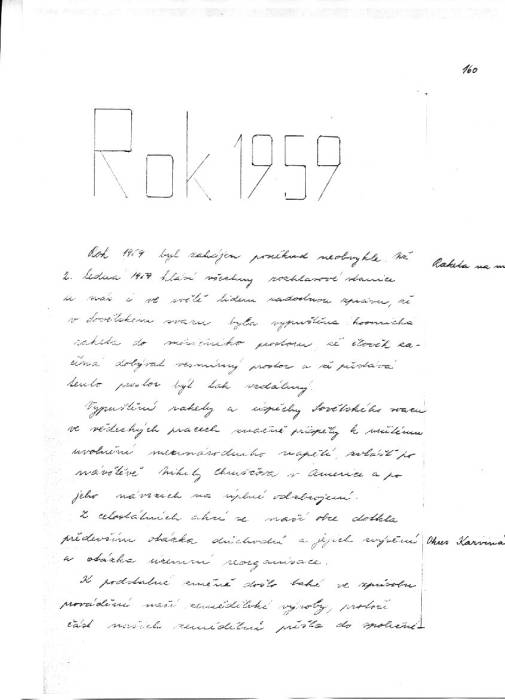 160
Rok 1959
Rok 1959 byl zahájen poněkud neobvykle. Již
Raketa na m
2. ledna 1959 hlásí všechny rozhlasové stanice
u nás i ve světě lidem radostnou zprávu, že
v Sovětském svazu byla vypuštěna kosmická
raketa do měsíčního prostoru že člověk za-
číná dobývat vesmírný prostor a že přestává
tento prostor být tak vzdálený.
Vypuštění rakety a úspěchy Sovětského svazu
ve vědeckých pracech značně přispěly k
uvolnění mezinárodního napětí, zvláště po
návštěvě Nikity Chruščova v Americe a po
jeho návrzích na úplné odzbrojení.
Z celostátních akcí se naší obce dotkla
především otázka důchodů a jejich zvýšení
Okres Karviná
a otázka územní reorganisace.
K podstatné změně došlo také ve způsobu
provádění naší zemědělské výroby, protože
část našich zemědělců přešla do společné-